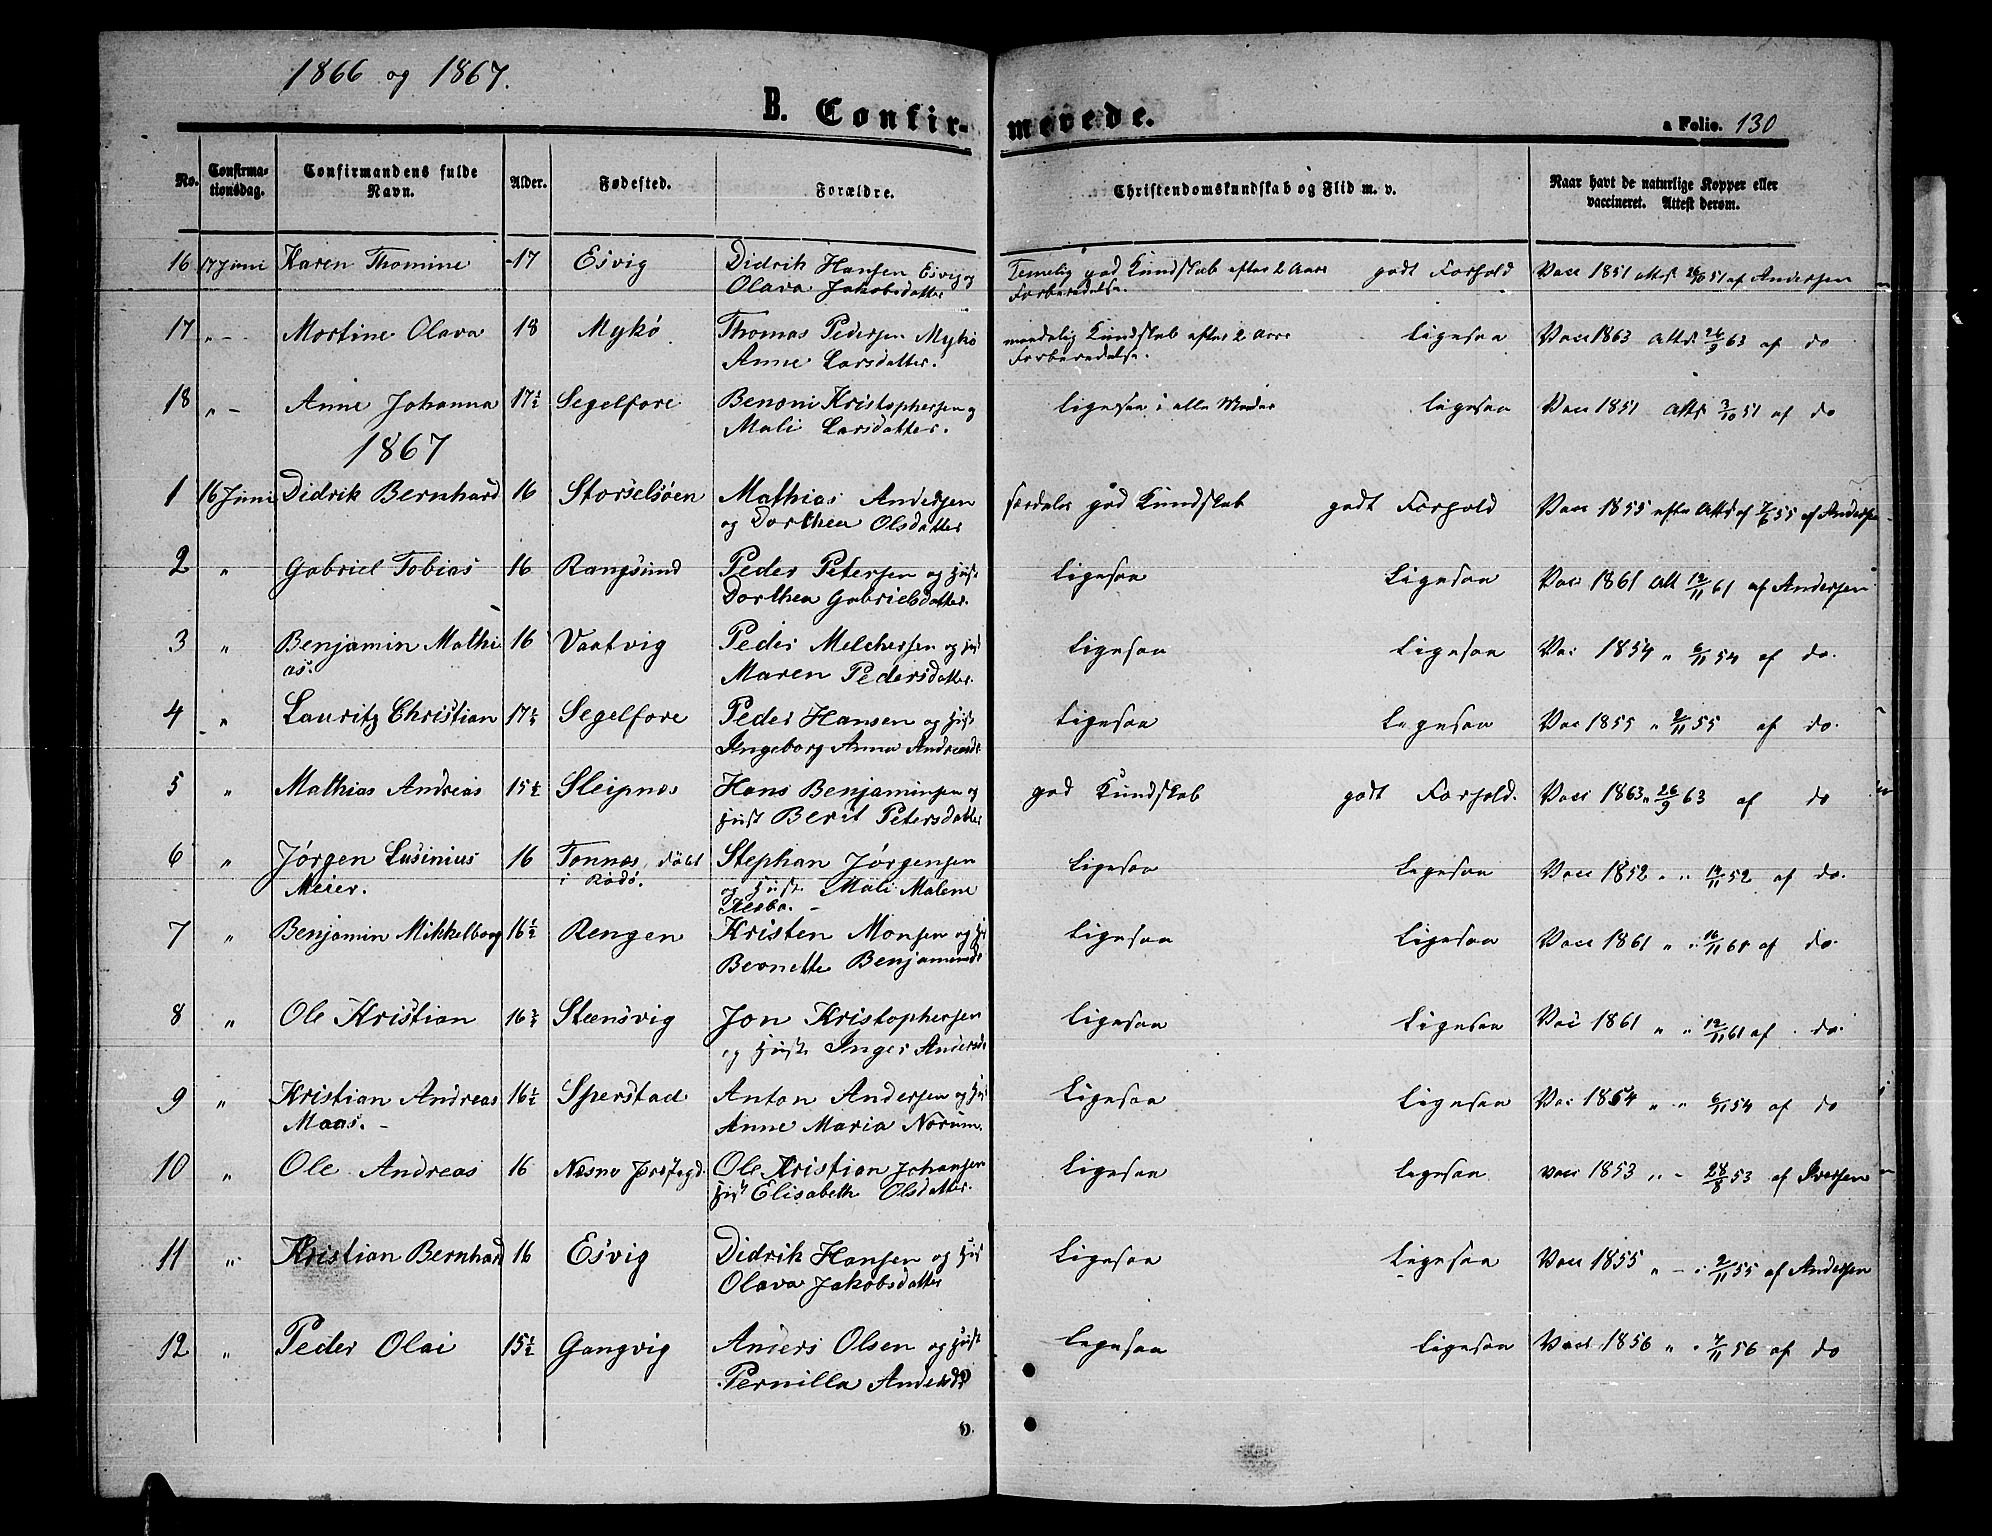 1866 og 1867.
B. Confirmerede.
a Folio. 130
No. Confirmationsdag. Confirmandens fulde Navn. Alder. Fødested. Forældre. Christendomskundskab og Flid m. v. Naar havt de naturlige Kopper eller vaccineret. Attest derom.
16 17 Juni Karen Thomine 17 Esvig Didrik Hansen Esvig og Temelig god Kundskab efter 2 Aars godt Forhold Vacc 1851 Att. af Andersen
Olava Jakobsdatter Forberedelse.
17 " - Martine Olava 18 Mykø Thomas Pedersen Mykø maadelig Kundskab efter 2 Aars Ligesaa Vacc 1863 Att. 26/9 63 af do
Anne Larsdatter. Forberedelse.
18 " - Anne Johanna 17½ Segelfore Benoni Kristophersen og Ligesaa i alle Maader Ligesaa Vacc 1851 Att. 3/10 51 af do
Mali Larsdatter.
1867
1 16 Juni Didrik Bernhard 16 Storselsøen Mathias Andersen særdeles god Kundskab godt Forhold Vacc 1855 efter Att. af 7/6 55 af Andersen
og Dorthea Olsdatter
2 " Gabriel Tobias 16 Rangsund Peder Petersen og Hust Ligesaa Ligesaa Vacc 1861 Att 12/11 61 af Andersen
Dorthea Gabrielsdatter.
3 " Benjamin Mathi 16 Vaatvig Peder Melchersen og Hust Ligesaa Ligesaa Vac 1854 " 6/11 54 af do.
as. Maren Pedersdatter.
4 " Lauritz Christian 17½ Segelfore Peder Hansen og Hust Ligesaa Ligesaa Vac 1855 " 2/11 55 af do
Ingeborg Anna Andreasd
5 " Mathias Andreas 15½ Sleipnes Hans Benjaminsen og god Kundskab godt Forhold. Vacc 1863 " 26/9 63 af do
Hust Berit Petersdatter
6 " Jørgen Lusinius 16 Tonnes, døbt Stephan Jørgensen Ligesaa Ligesaa Vacc 1852 " " 14/11 52 af do.
Meier. i Rødø. og Hust. Mali Malene
7 " Benjamin Mikkelborg 16½ Rengen Kristen Monsen og Hust Ligesaa Ligesaa Vacc 1861 " " 16/11 61 af do.
Bernette Benjaminsd
8 " Ole Kristian 16¾ Stensvig Jon Kristophersen Ligesaa Ligesaa Vac 1861 " " 12/11 61 af do.
og Hust. Inger Andersd
9 " Kristian Andreas 16½ Sperstad Anton Andersen og Hust Ligesaa Ligesaa Vac 1854 " " 6/11 54 af do
Maas. - Anne Maria Norum.
10 " Ole Andreas 16 Næsne Præstegd. Ole Kristian Johansen Ligesaa Ligesaa vacc 1853 " - 28/8 53 af Iversen
Hust Elisabeth Olsdatter.
11 " Kristian Bernhard 16 Esvig Didrik Hansen og Hust Ligesaa Ligesaa Vacc 1855 " - 2/11 55 af Andersen
Olava Jakobsdatter
12 " Peder Olai 15½ Gangvig Anders Olsen og Hust Ligesaa Ligesaa Vacc 1856 " " 7/11 56 af do
Pernilla Andersd